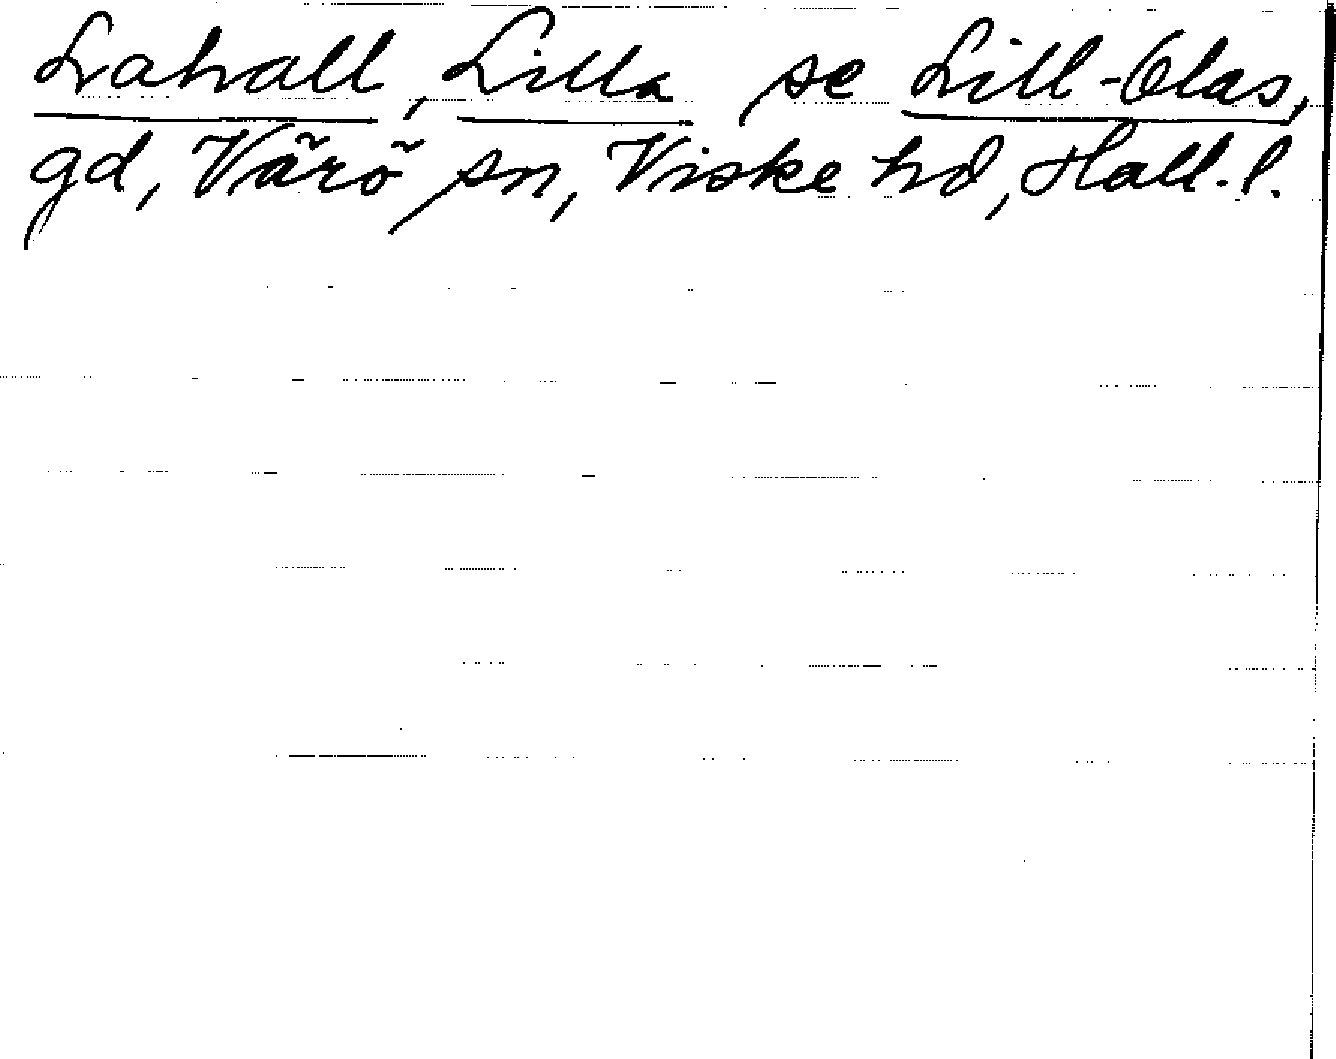 Lahall, Lilla se Lill-Olas,
gd, Värö sn, Viske hd, Hall. l.